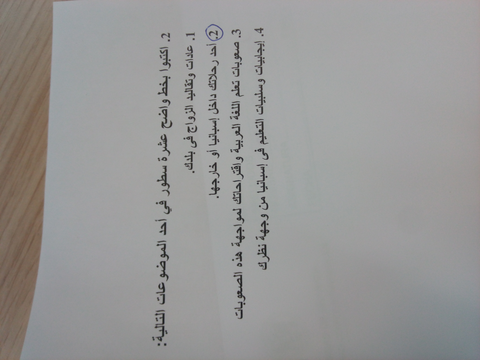 2. اكتبوا بخط واضح عشرة سطور في أحد الموضوعات التالية:
1. عادات وتقاليد الزواج في بلدك.
2. أحد رحلاتك داخل إسبانيا أو خارجها.
3. صعوبات تعلم اللغة العربية واقتراحاتك لمواجهة هذه الصعوبات
4. إيجابيات وسلبيات التعليم في إسبانيا من وجهة نظرك